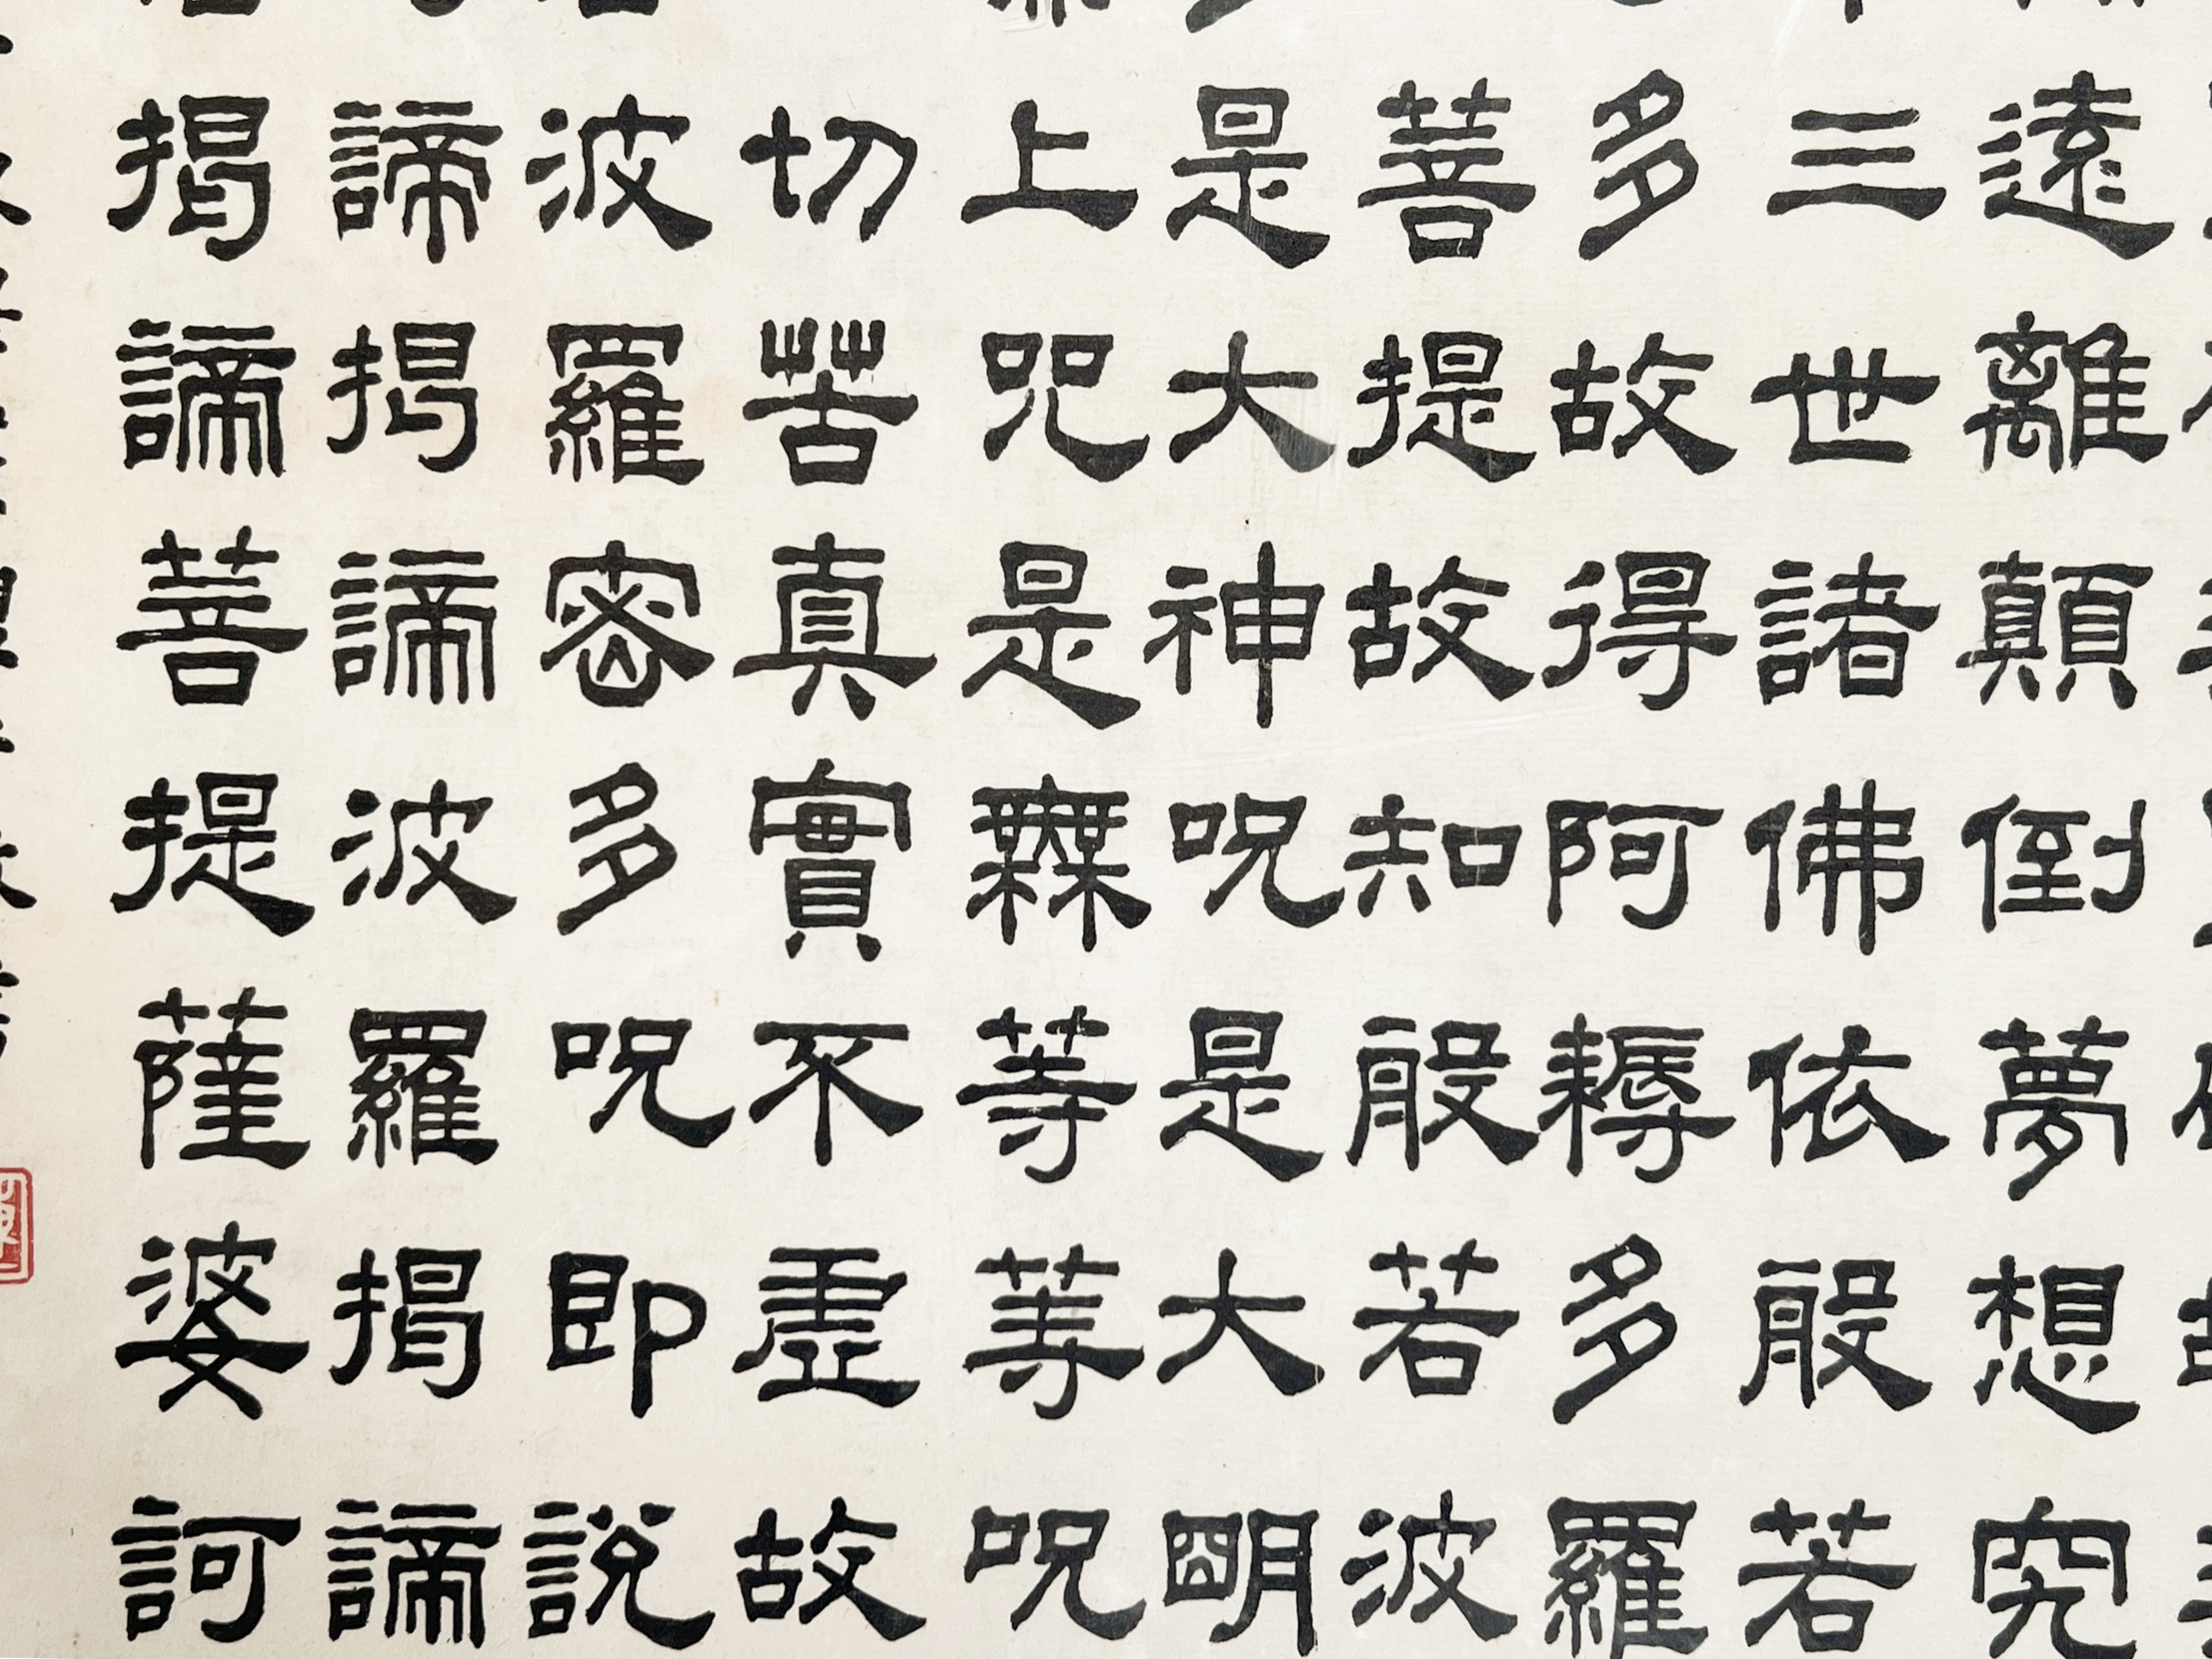 遠離顛倒夢想究
三世諸佛依般若
多故得阿耨多羅
菩提故知般若波
是大神咒是大明
上咒是無等等咒
切苦真實不虛故
波羅密多咒即說
諦揭諦波羅揭諦
揭諦菩提薩婆訶